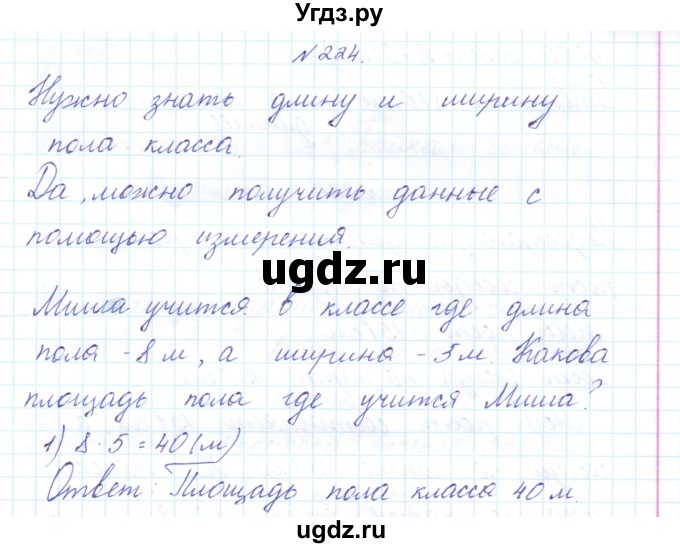 Угдз.ру
№ 224.
Нужно знать длину и ширину
пола класса.
Да, можно получить данные с
помощью измерения.
ugdz.ru
Миша учится в классе где длина
пола - 8 м, а ширина - 5 м. Какова
площадь пола где учится Миша?
1) 8 · 5 = 40 (м)
Ответ: Площадь пола класса 40 м.
ugdz.ru